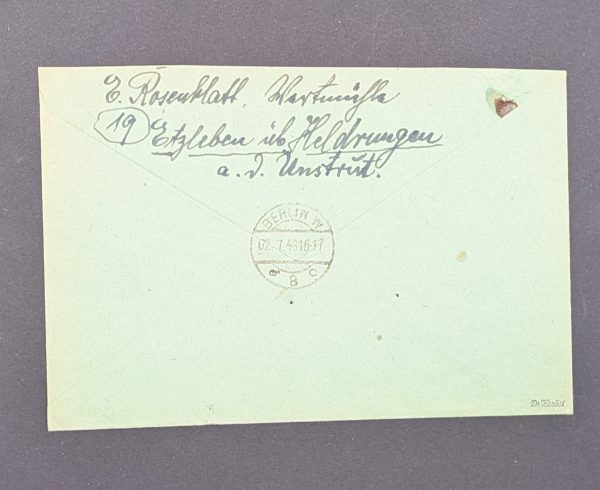 E. Rosenblatt, Wertmühle
(19) Etzleben üb Heldrungen
a. d. Unstrut.
BERLIN W
02.-7.4816-17
a 8 c